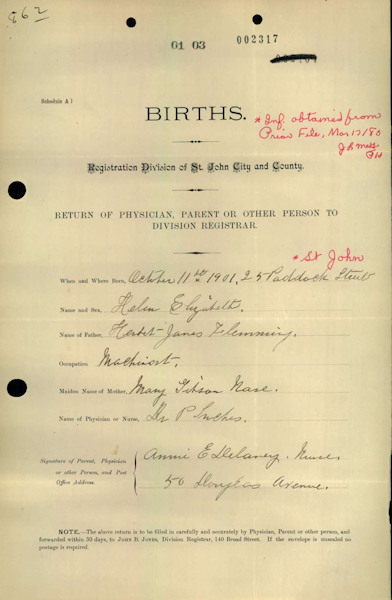 862
01 03
002317
Schedule A 1
BIRTHS.
* Inf. obtained from
Prior File, Mar 17/80
Registration Division of St. John City and County.
RETURN OF PHYSICIAN, PARENT OR OTHER PERSON TO
DIVISION REGISTRAR.
* St John
When and Where Born, October 11th 1901, 25 Paddock Street
Name and Sex, Helen Elizabeth.
Name of Father, Herbert James Flemming.
Occupation Machinist.
Maiden Name of Mother, Mary Gibson Nase.
Name of Physician or Nurse, Dr P Inches.
Signature of Parent, Physician
or other Person, and Post
Office Address.
Annie E Delaney. Nurse.
50 Douglas Avenue.
NOTE.—The above return is to be filled in carefully and accurately by Physician, Parent or other person, and
forwarded within 30 days, to JOHN B. JONES, Division Registrar, 140 Broad Street. If the envelope is unsealed no
postage is required.